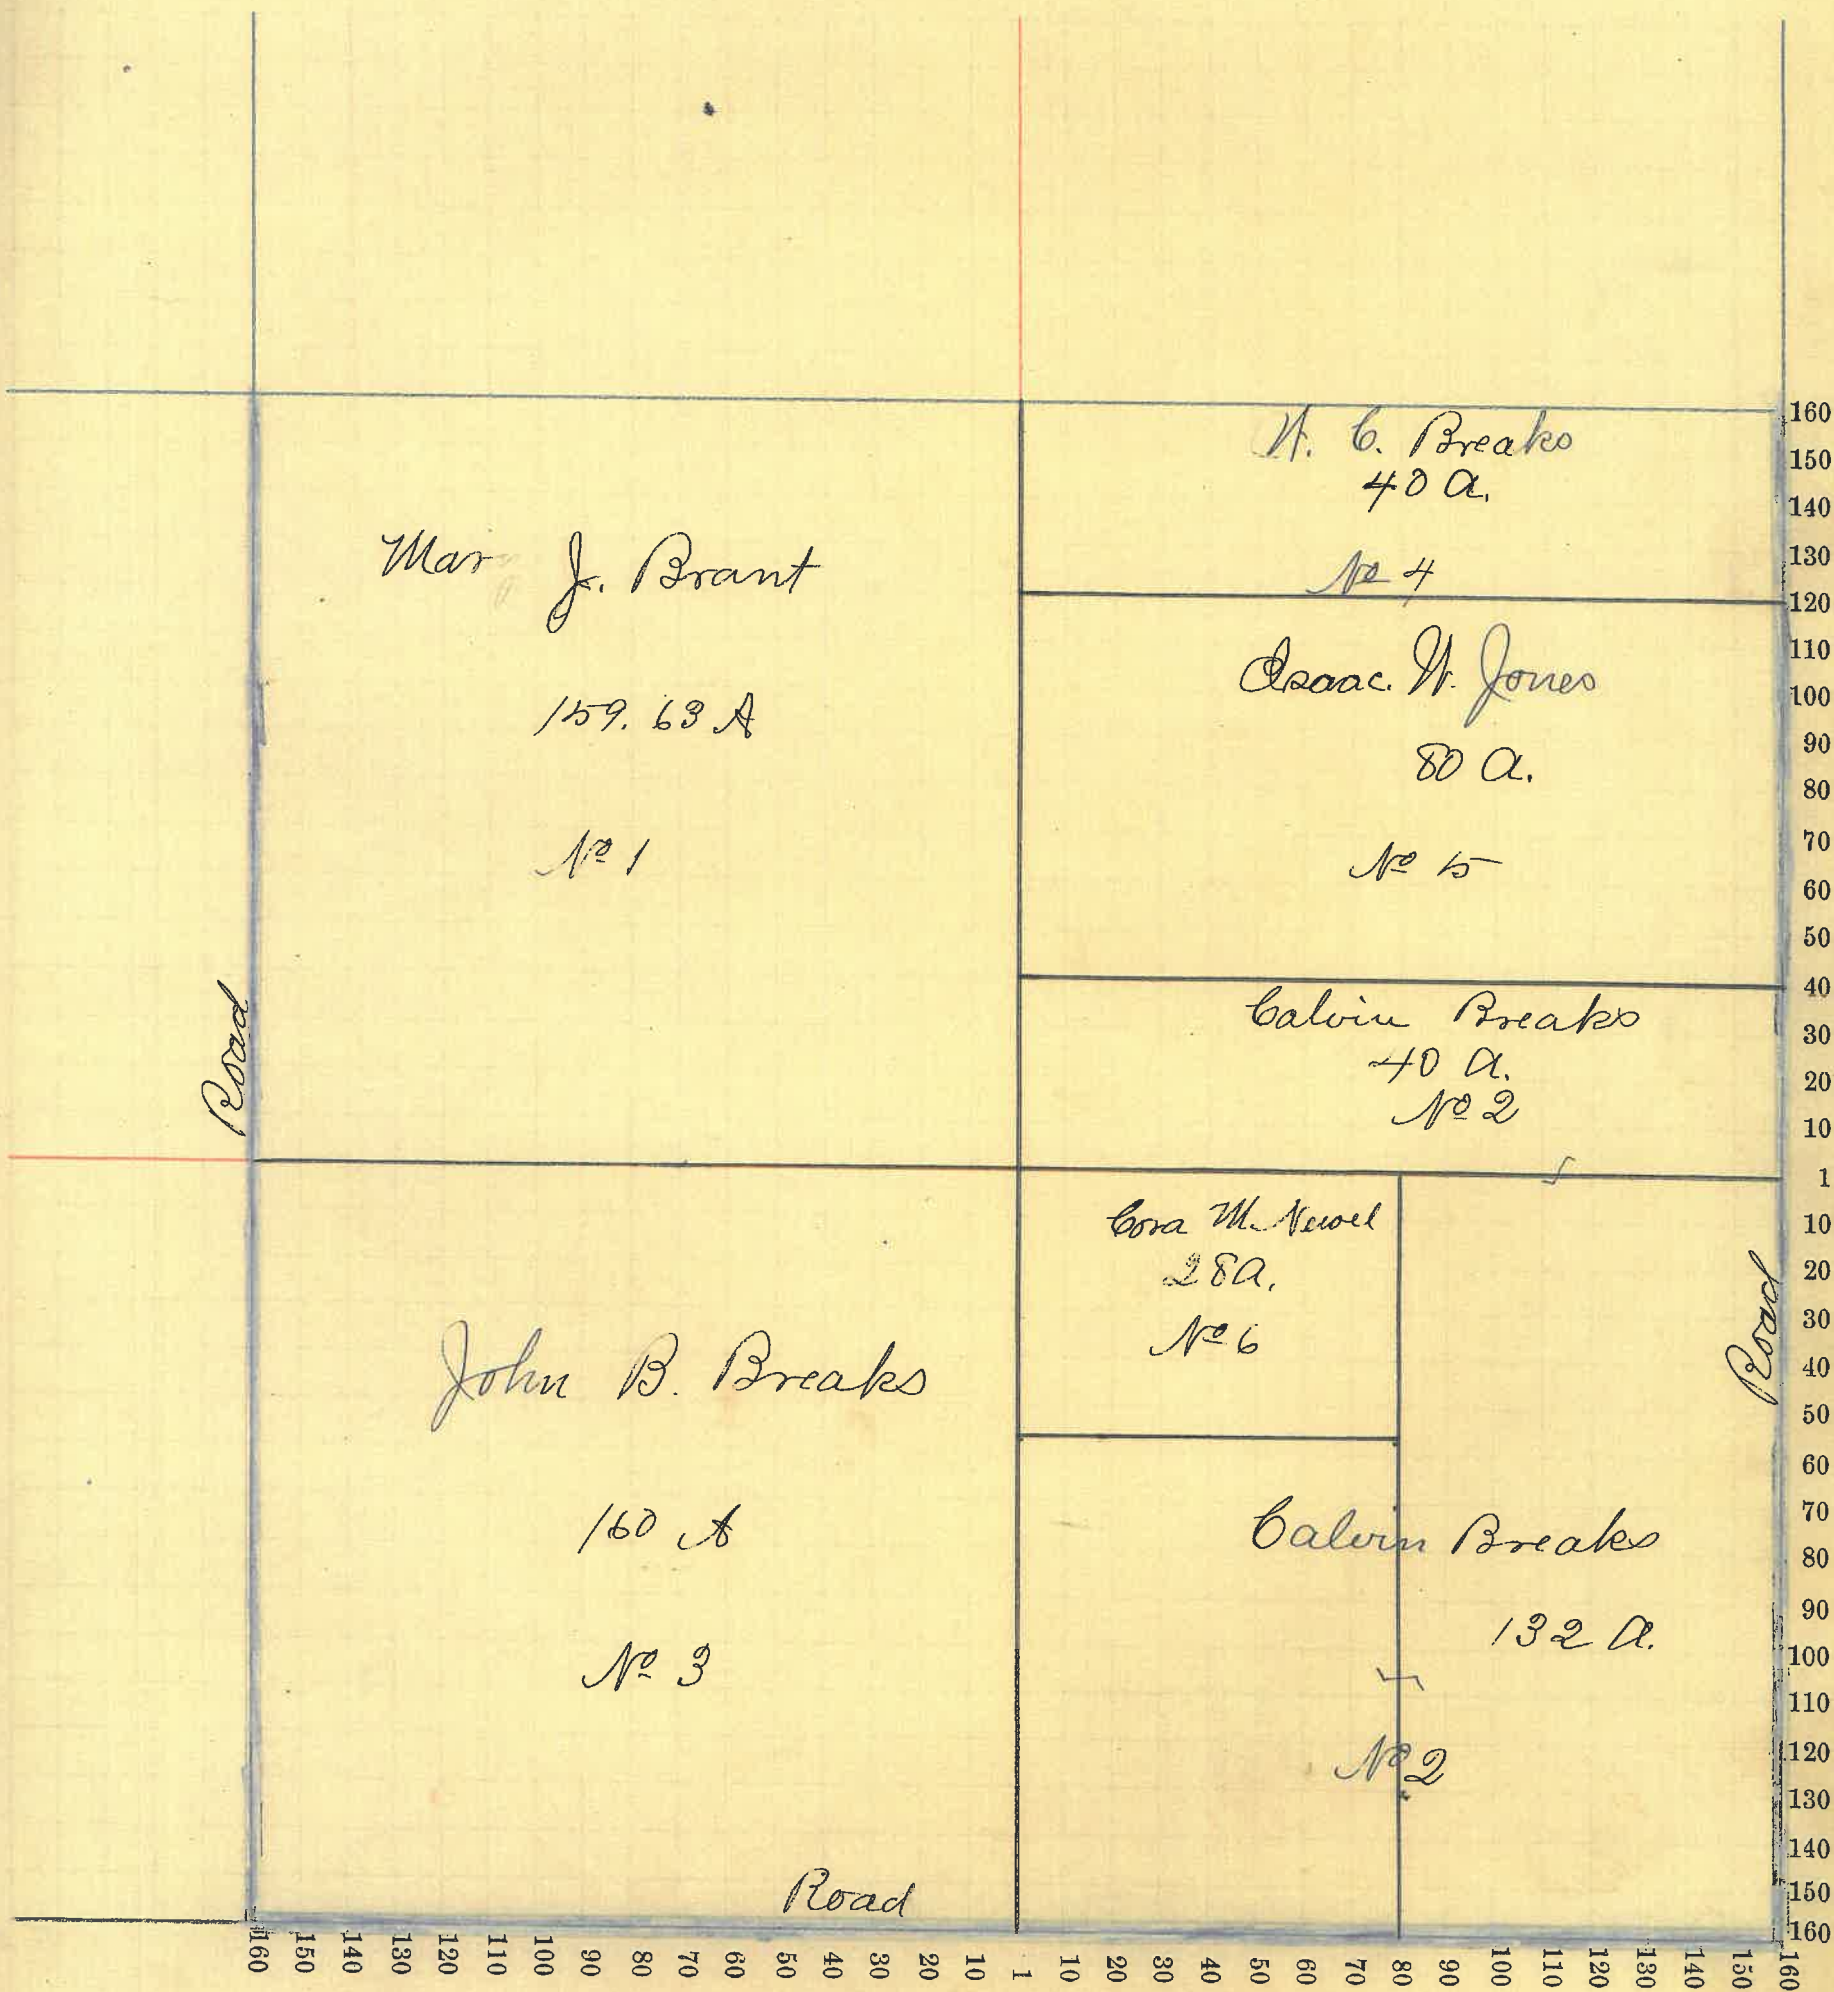 Mar J. Brant
159.63 A
No 1
W. C. Breaks
40 a.
No 4
Isaac. W. Jones
80 a.
No 5
Calvin Breaks
40 a.
No 2
Cora M. Newel
28 a.
No 6
John B. Breaks
160 A
No 3
Calvin Breaks
132 a.
No 2
Road
Road
Road
160
150
140
130
120
110
100
90
80
70
60
50
40
30
20
10
1
10
20
30
40
50
60
70
80
90
100
110
120
130
140
150
160
160 150 140 130 120 110 100 90 80 70 60 50 40 30 20 10 1 10 20 30 40 50 60 70 80 90 100 110 120 130 140 150 160